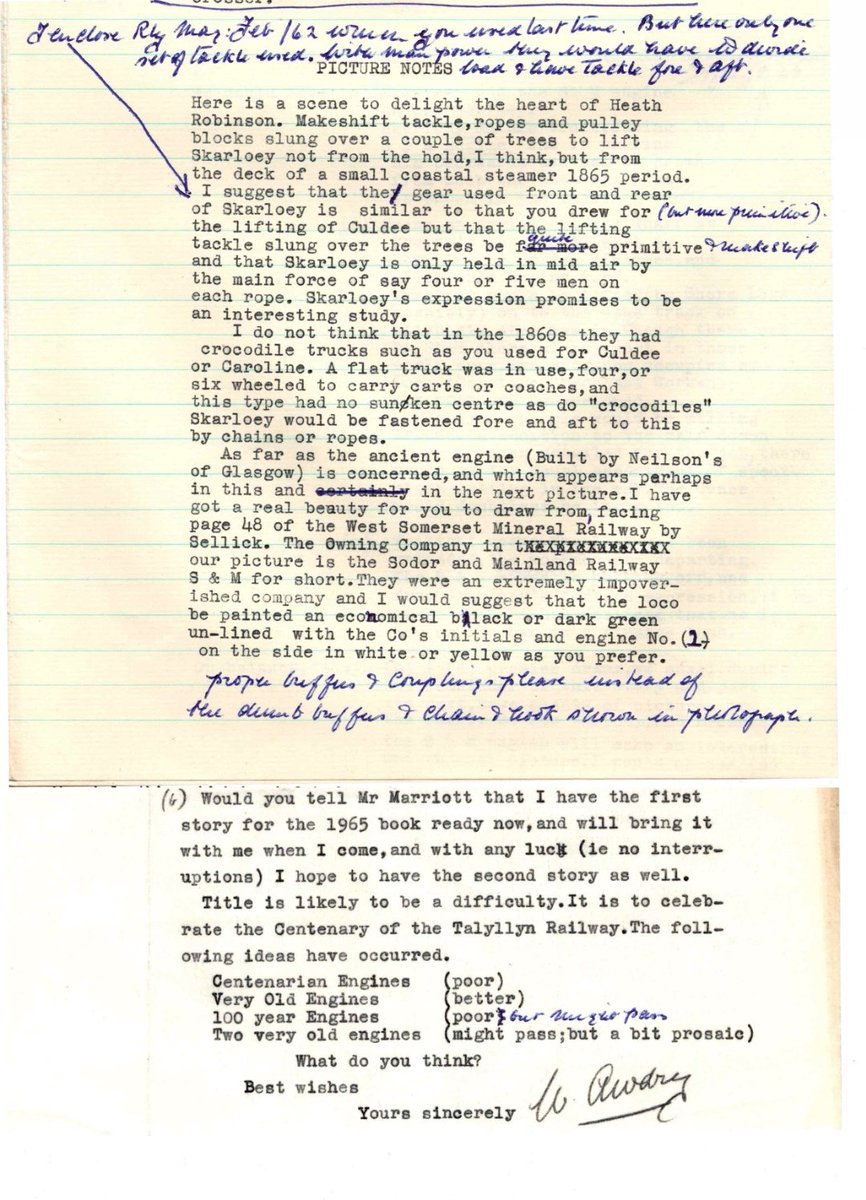 I enclose Rly Mag: Feb /62 which you used last time. But here only one
set of tackle used. With man power they would have to divide
PICTURE NOTES load & have tackle fore & aft.
Here is a scene to delight the heart of Heath
Robinson. Makeshift tackle,ropes and pulley
blocks slung over a couple of trees to lift
Skarloey not from the hold,I think,but from
the deck of a small coastal steamer 1865 period.
I suggest that the gear used front and rear
of Skarloey is similar to that you drew for (but more primitive).
the lifting of Culdee but that the lifting
tackle slung over the trees be far more quite primitive & makeshift
and that Skarloey is only held in mid air by
the main force of say four or five men on
each rope. Skarloey's expression promises to be
an interesting study.
I do not think that in the 1860s they had
crocodile trucks such as you used for Culdee
or Caroline. A flat truck was in use,four,or
six wheeled to carry carts or coaches,and
this type had no sunken centre as do "crocodiles"
Skarloey would be fastened fore and aft to this
by chains or ropes.
As far as the ancient engine (Built by Neilson's
of Glasgow) is concerned,and which appears perhaps
in this and certainly in the next picture.I have
got a real beauty for you to draw from, facing
page 48 of the West Somerset Mineral Railway by
Sellick. The Owning Company in
our picture is the Sodor and Mainland Railway
S & M for short.They were an extremely impover-
ished company and I would suggest that the loco
be painted an economical black or dark green
un-lined with the Co's initials and engine No.(1)
on the side in white or yellow as you prefer.
proper buffers & couplings please instead of
the dumb buffers & chain & hook shown in photograph.
(6) Would you tell Mr Marriott that I have the first
story for the 1965 book ready now,and will bring it
with me when I come,and with any luck (ie no interr-
uptions) I hope to have the second story as well.
Title is likely to be a difficulty.It is to celeb-
rate the Centenary of the Talyllyn Railway.The foll-
owing ideas have occurred.
Centenarian Engines (poor)
Very Old Engines (better)
100 year Engines (poor) but might pass
Two very old engines (might pass;but a bit prosaic)
What do you think?
Best wishes
Yours sincerely W. Awdry